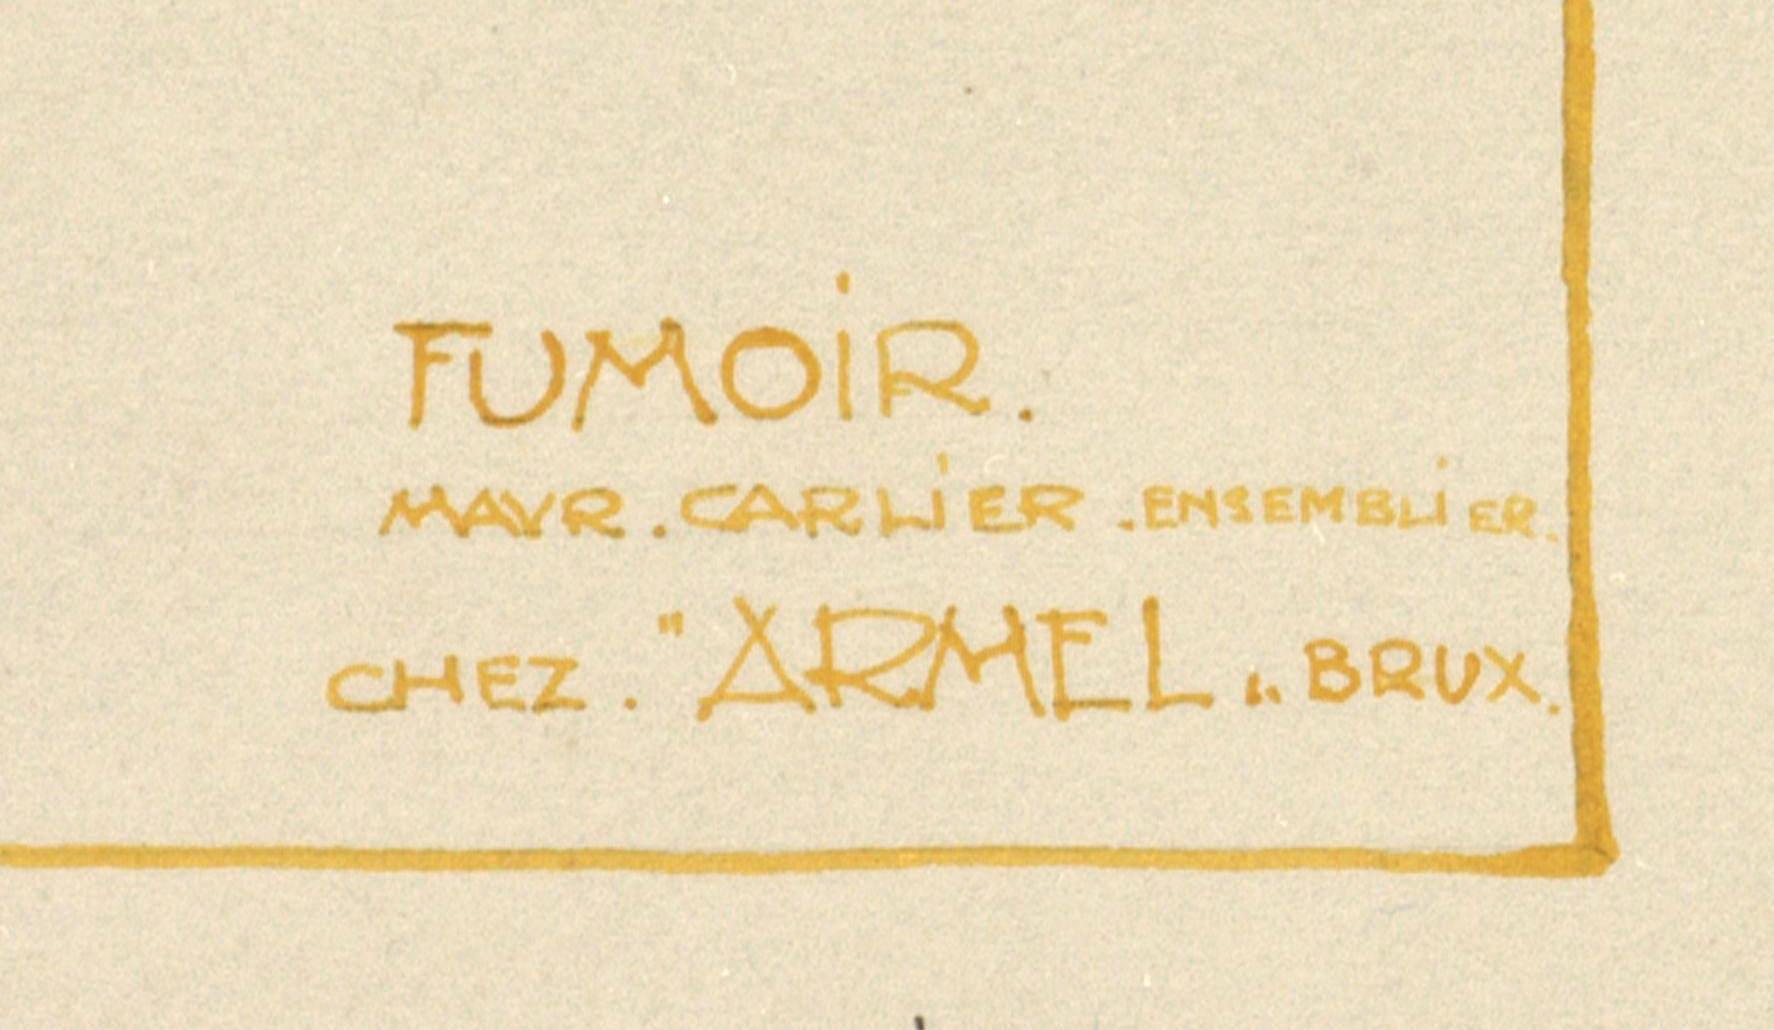 FUMOiR.
MAVR. CARLiER. ENSEMBLiER.
CHEZ. "ARMEL„ BRUX.